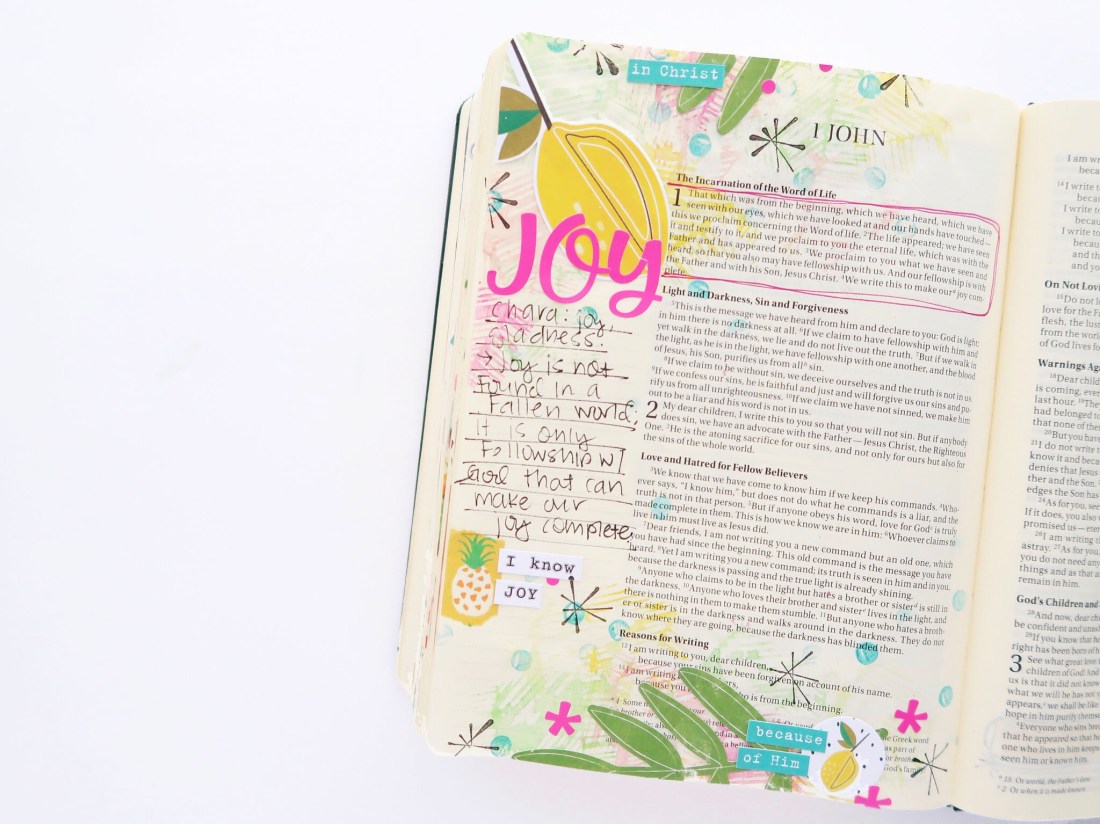 in Christ
1 JOHN
JOY
chara: joy,
gladness.
→ Joy is not
found in a
fallen world;
it is only
fellowship w/
God that can
make our
joy complete.
I know
JOY
The Incarnation of the Word of Life
1 That which was from the beginning, which we have heard, which we have
seen with our eyes, which we have looked at and our hands have touched—
this we proclaim concerning the Word of life. 2The life appeared; we have seen
it and testify to it, and we proclaim to you the eternal life, which was with the
Father and has appeared to us. 3We proclaim to you what we have seen and
heard, so that you also may have fellowship with us. And our fellowship is with
the Father and with his Son, Jesus Christ. 4We write this to make our joy com-
plete.
Light and Darkness, Sin and Forgiveness
5This is the message we have heard from him and declare to you: God is light;
in him there is no darkness at all. 6If we claim to have fellowship with him and
yet walk in the darkness, we lie and do not live out the truth. 7But if we walk in
the light, as he is in the light, we have fellowship with one another, and the blood
of Jesus, his Son, purifies us from all sin.
8If we claim to be without sin, we deceive ourselves and the truth is not in us.
9If we confess our sins, he is faithful and just and will forgive us our sins and pu-
rify us from all unrighteousness. 10If we claim we have not sinned, we make him
out to be a liar and his word is not in us.
2 My dear children, I write this to you so that you will not sin. But if anybody
does sin, we have an advocate with the Father—Jesus Christ, the Righteous
One. 2He is the atoning sacrifice for our sins, and not only for ours but also for
the sins of the whole world.
Love and Hatred for Fellow Believers
3We know that we have come to know him if we keep his commands. 4Who-
ever says, "I know him," but does not do what he commands is a liar, and the
truth is not in that person. 5But if anyone obeys his word, love for God is truly
made complete in them. This is how we know we are in him: 6Whoever claims to
live in him must live as Jesus did.
7Dear friends, I am not writing you a new command but an old one, which
you have had since the beginning. This old command is the message you have
heard. 8Yet I am writing you a new command; its truth is seen in him and in you,
because the darkness is passing and the true light is already shining.
9Anyone who claims to be in the light but hates a brother or sister is still in
the darkness. 10Anyone who loves their brother and sister lives in the light, and
there is nothing in them to make them stumble. 11But anyone who hates a broth-
er or sister is in the darkness and walks around in the darkness. They do not
know where they are going, because the darkness has blinded them.
Reasons for Writing
12I am writing to you, dear children,
because your sins have been forgiven on account of his name.
13I am writing
because you who is from the beginning.
because
of Him
I am
14I write to
I write to
On Not Lovi
15Do not
love for the F
flesh, the lust
from the world
of God lives fo
Warnings Aga
18Dear child
is coming, even
last hour. 19The
had belonged to
that none of the
20But you have
21I do not write t
know it and beca
denies that Jesus
ther and the Son.
edges the Son has
24As for you, see
If it does, you also
promised us—eter
26I am writing
astray. 27As for you
you do not need any
things and as that a
remain in him.
God's Children and
28And now, dear
be confident and unash
29If you know that h
right has been born of h
3 See what great love
children of God! And
us is that it did not know
what we will be has not
appears, we shall be like
hope in him purify themse
4Everyone who sins brea
that he appeared so that he
one who lives in him keep
seen him or known him.